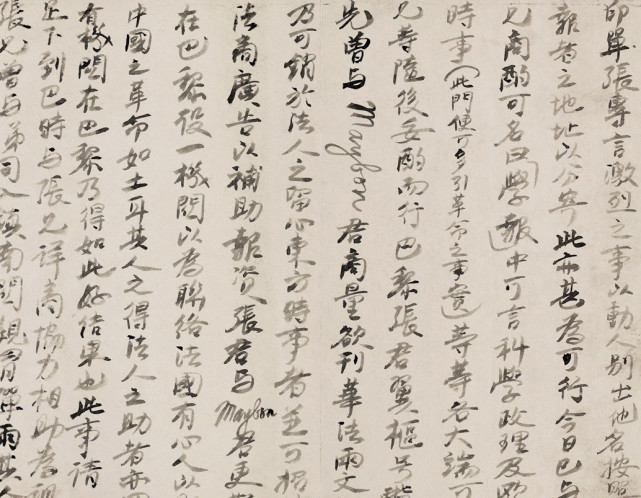 即單張專言激烈之事以動人別士他名按照
報者之地址以分寄此亦甚為可行今日已与
兄商酌可名曰學報中可言科學政理及
時事(此門便可多引革命之事實)等等各大端可
兄等隨後妥酌而行巴黎張君翼樞号
先曾与Maybon君商量欲刊華法兩文
乃可銷於法人之留心東方時事者並可招
法商廣告以補助報資張君与Maybon君更
在巴黎設一機関以為聯絡法國有心人以
中國之革命如土耳其人之得法人之助者亦
有機関在巴黎乃得如此好結果也此事請
足下到巴時与張兄詳商協力相助為
張兄曾与弟同入鎮南関親冒弹雨其人